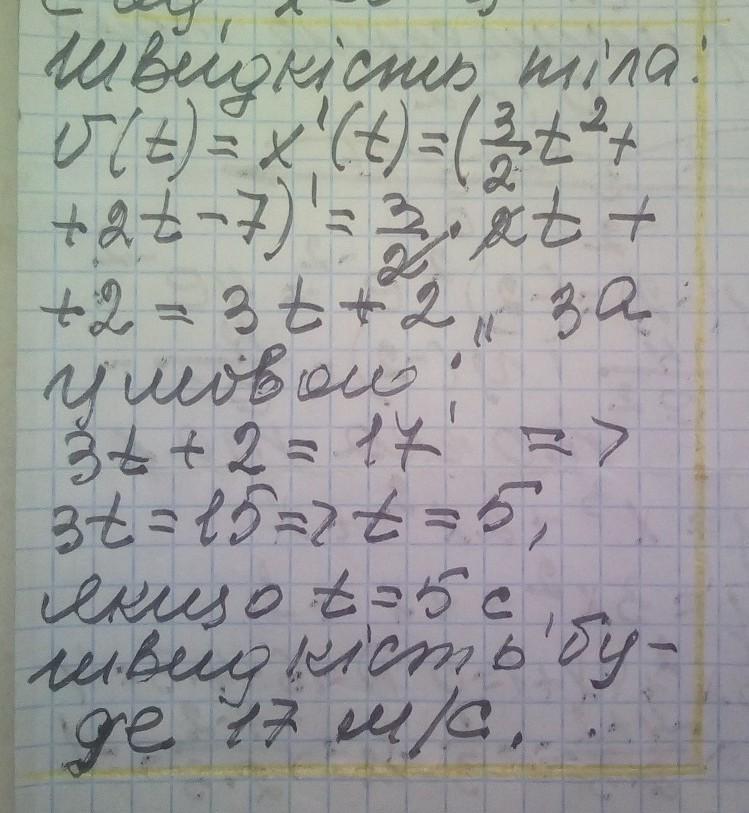 Швидкість тіла:
v(t) = x'(t) = (3/2 t² +
+ 2t - 7)' = 3/2 · 2t +
+2 = 3t + 2, за
умовою:
3t + 2 = 17 =>
3t = 15 => t = 5,
якщо t = 5 с
швидкість бу-
де 17 м/с.